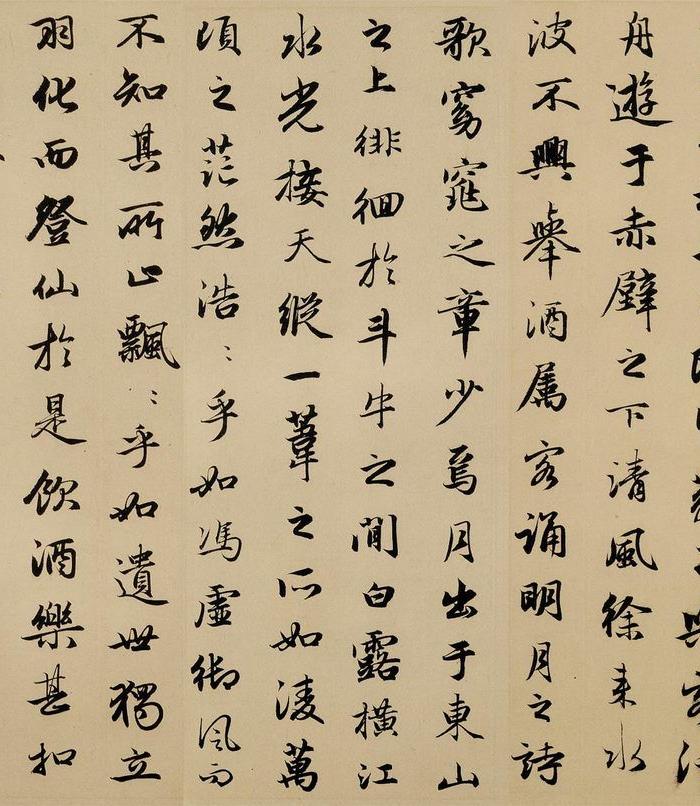 舟遊于赤壁之下清風徐来水
波不興舉酒属客誦明月之詩
歌窈窕之章少焉月出于東山
之上徘徊於斗牛之間白露橫江
水光接天縱一葦之所如淩萬
頃之茫然浩〻乎如馮虛御風而
不知其所止飄〻乎如遺世獨立
羽化而登仙於是飲酒樂甚扣